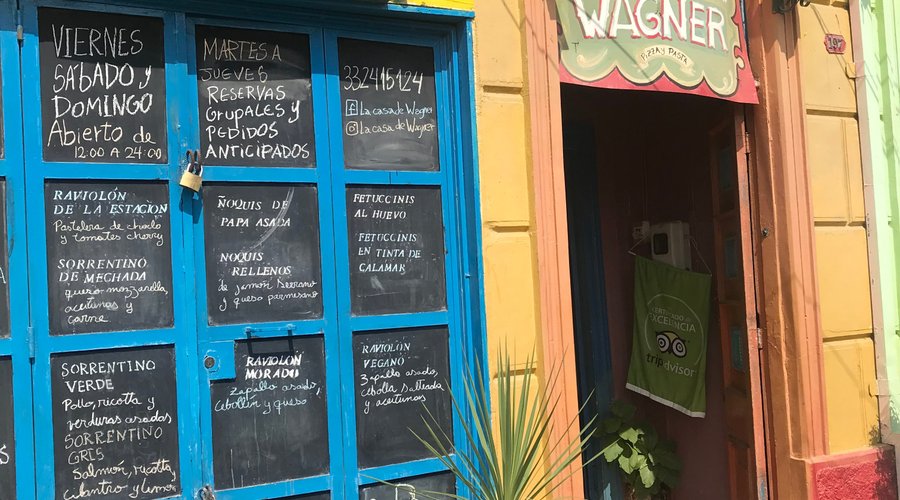 VIERNES
SÁBADO Y
DOMINGO
Abierto de
12:00 A 24:00
MARTES A
JUEVES
RESERVAS
GRUPALES Y
PEDIDOS
ANTICIPADOS
332415124
La casa de Wagner
La casa de Wagner
RAVIOLÓN
DE LA ESTACION
Pastelera de choclo
y tomates cherry
SORRENTINO
DE MECHADA
queso mozzarella,
aceitunas y
carne.
ÑOQUIS DE
PAPA ASADA
NOQUIS
RELLENOS
de jamón serrano
y queso parmesano
FETUCCINIS
AL HUEVO
FETUCCINIS
EN TINTA DE
CALAMAR
SORRENTINO
VERDE
Pollo, ricotta y
verduras asadas
SORRENTINO
GRIS
Salmón, ricotta,
cilantro y limón
RAVIOLÓN
MORADO
Zapallo asado,
cibollín y queso
RAVIOLÓN
VEGANO
Zapallo asado,
cebolla salteada
y aceitunas
WAGNER
PIZZA Y PASTA
197
CERTIFICADO de
EXCELENCIA
tripadvisor